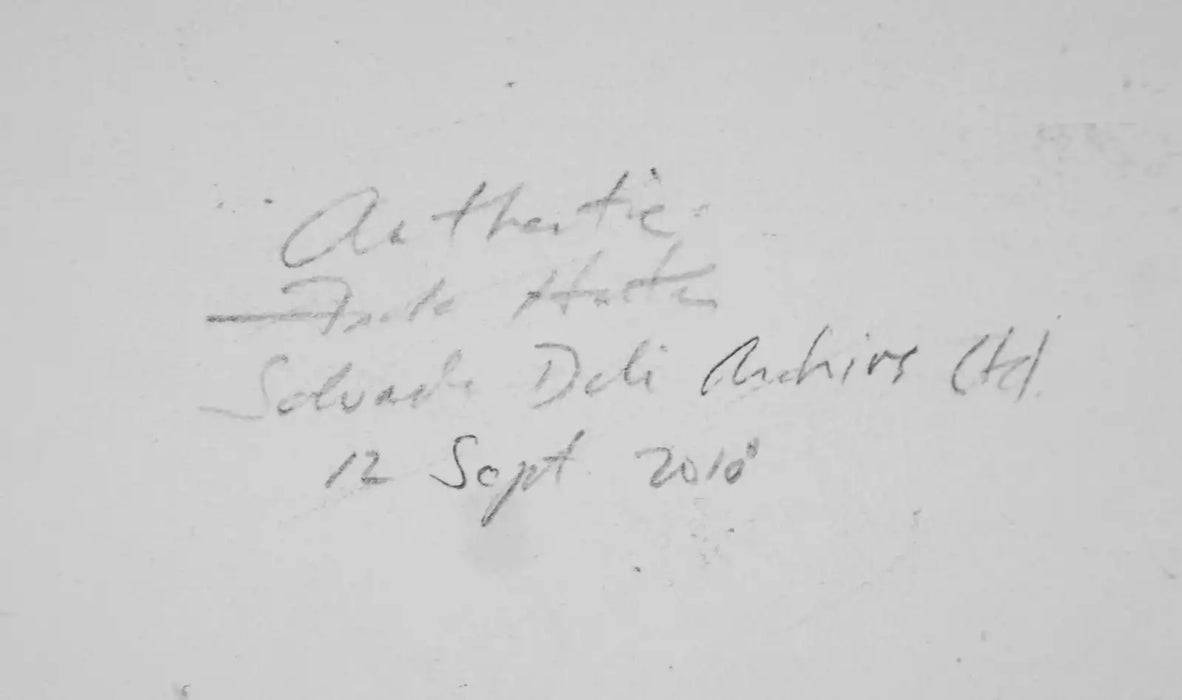 Authentic
Frank Hunter
Salvador Dali Archives Ltd.
12 Sept 2018